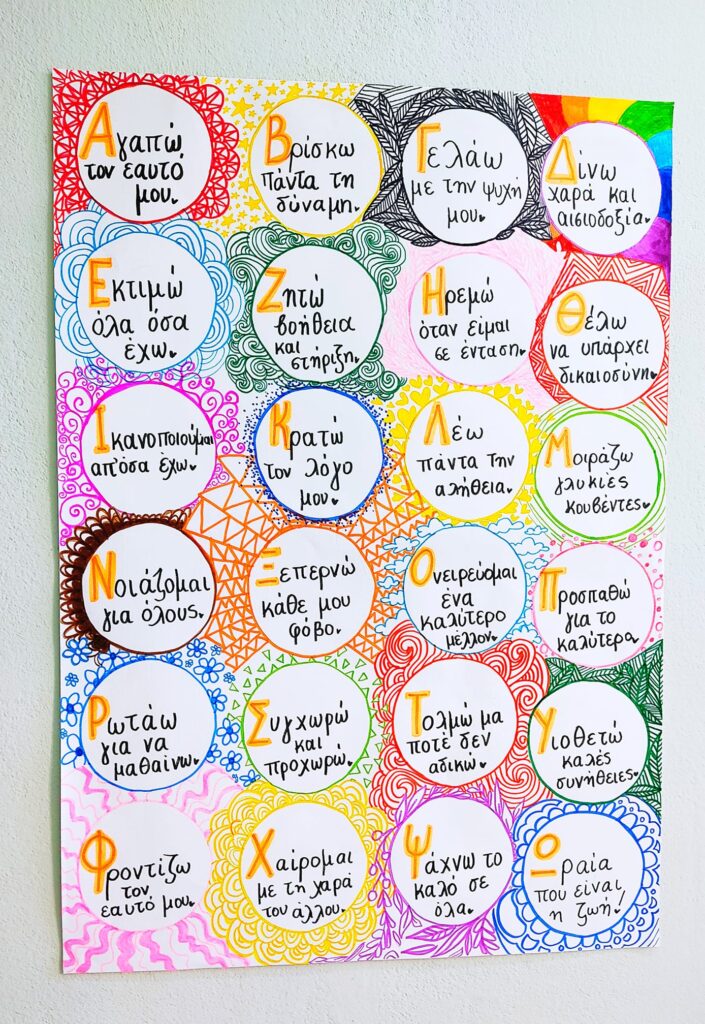 Αγαπώ
τον εαυτό
μου.
Βρίσκω
πάντα τη
δύναμη.
Γελάω
με την ψυχή
μου.
Δίνω
χαρά και
αισιοδοξία.
Εκτιμώ
όλα όσα
έχω.
Ζητώ
βοήθεια
και
στήριξη.
Ηρεμώ
όταν είμαι
σε ένταση.
Θέλω
να υπάρχει
δικαιοσύνη.
Ικανοποιούμαι
απ'όσα έχω.
Κρατώ
τον λόγο
μου.
Λέω
πάντα την
αλήθεια.
Μοιράζω
γλυκιές
κουβέντες.
Νοιάζομαι
για όλους.
Ξεπερνώ
κάθε μου
φόβο.
Ονειρεύομαι
ένα
καλύτερο
μέλλον.
Προσπαθώ
για το
καλύτερα
Ρωτάω
για να
μαθαίνω.
Συγχωρώ
και
προχωρώ.
Τολμώ μα
ποτέ δεν
αδικώ.
Υιοθετώ
καλές
συνήθειες.
Φροντίζω
τον
εαυτό μου.
Χαίρομαι
με τη χαρά
του άλλου.
Ψάχνω το
καλό σε
όλα.
Ωραία
που είναι
η ζωή!